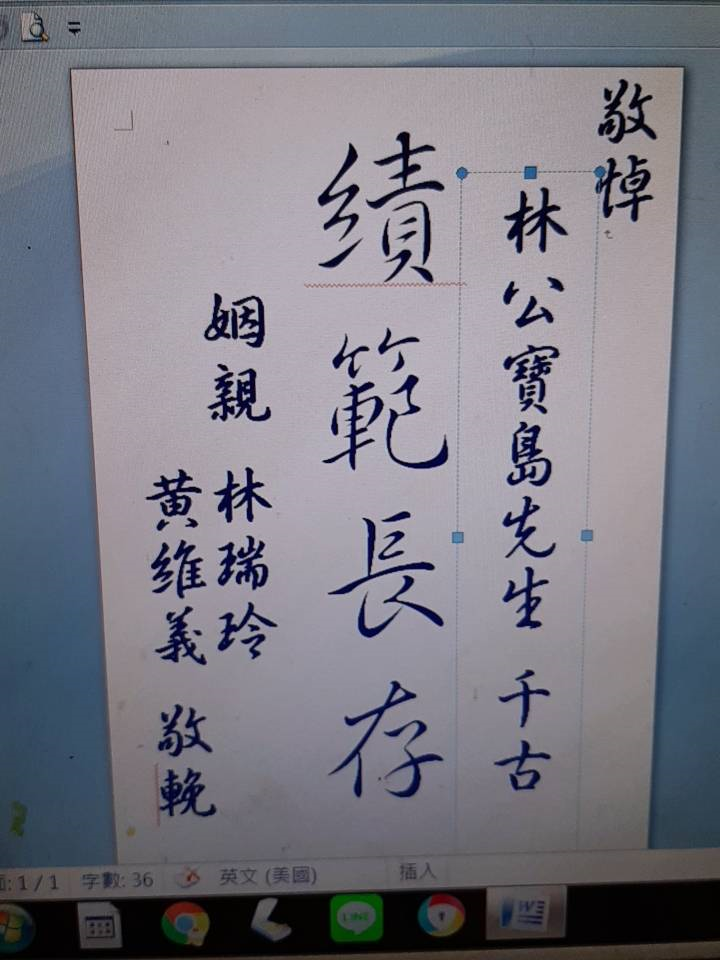 敬悼
林公寶島先生 千古
績範長存
姻親 林瑞玲
黃維義 敬輓
頁面: 1 / 1 字數: 36 英文 (美國) 插入
LINE
W